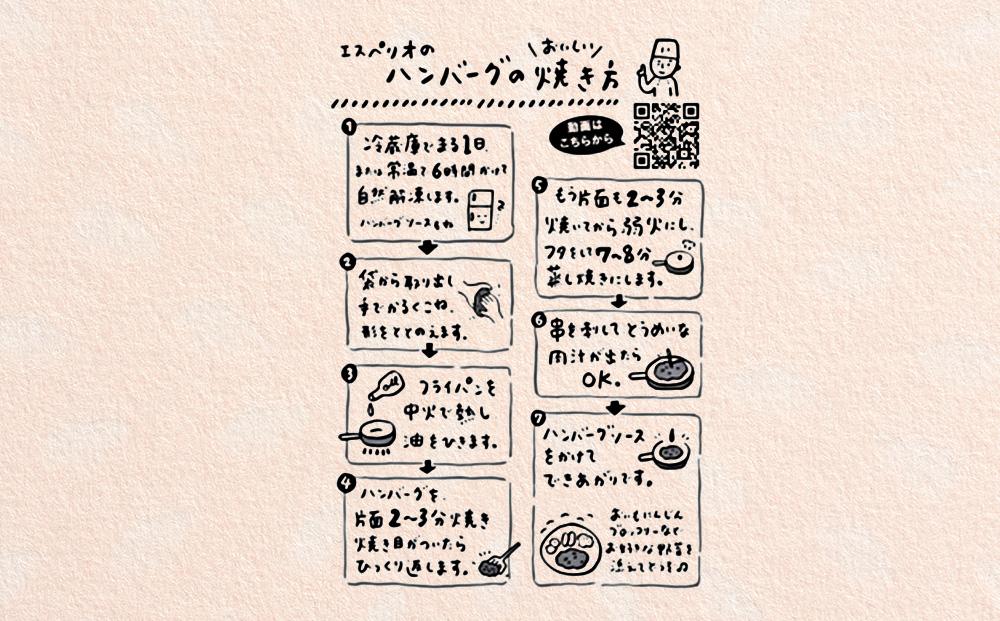 エスペリオの
\おいしい/
ハンバーグの焼き方
動画は
こちらから
1
冷蔵庫でまる1日、
または常温で6時間かけて
自然解凍します。
ハンバーグソースもね
2
袋から取り出し
手でかるくこね、
形をととのえます。
3
oil
フライパンを
中火で熱し
油をひきます。
4
ハンバーグを、
片面2〜3分焼き
焼き目がついたら
ひっくり返します。
5
もう片面も2〜3分
焼いてから弱火にし、
フタをして7〜8分
蒸し焼きにします。
6
串を刺してとうめいな
肉汁が出たら
OK。
7
ハンバーグソース
をかけて
できあがりです。
おいもにんじん
ブロッコリーなど
お好きな野菜を
添えてどうぞ♪